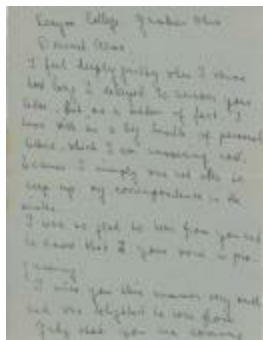 Kenyon College Gambier Ohio
Dearest
I feel deeply guilty when I
how long I delayed to answer your
letter. But as a matter of fact, I
have with me a big bundle of personal
letters, which I am answering now,
because I simply was not able to
keep up my correspondence in the
I was so glad to hear from you and
to know that your work is pro-
gressing
I miss you this summer very much
and was delighted to hear from
that you are coming